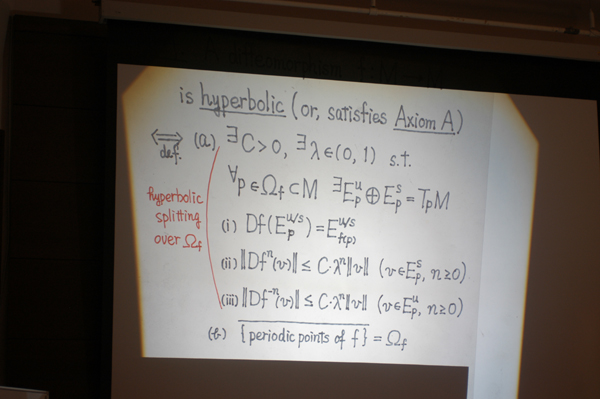 is hyperbolic (or, satisfies Axiom A)
⟺ def. (a) ∃C>0, ∃λ∈(0, 1) s.t.
∀p∈Ω_f⊂M ∃E_p^u⊕E_p^s=T_pM
hyperbolic
splitting
over Ω_f
(i) Df(E_p^{u/s})=E_{f(p)}^{u/s}
(ii) ‖Df^n(v)‖≤C·λ^n‖v‖ (v∈E_p^s, n≥0)
(iii) ‖Df^{-n}(v)‖≤C·λ^n‖v‖ (v∈E_p^u, n≥0)
(b) \overline{{periodic points of f}}=Ω_f